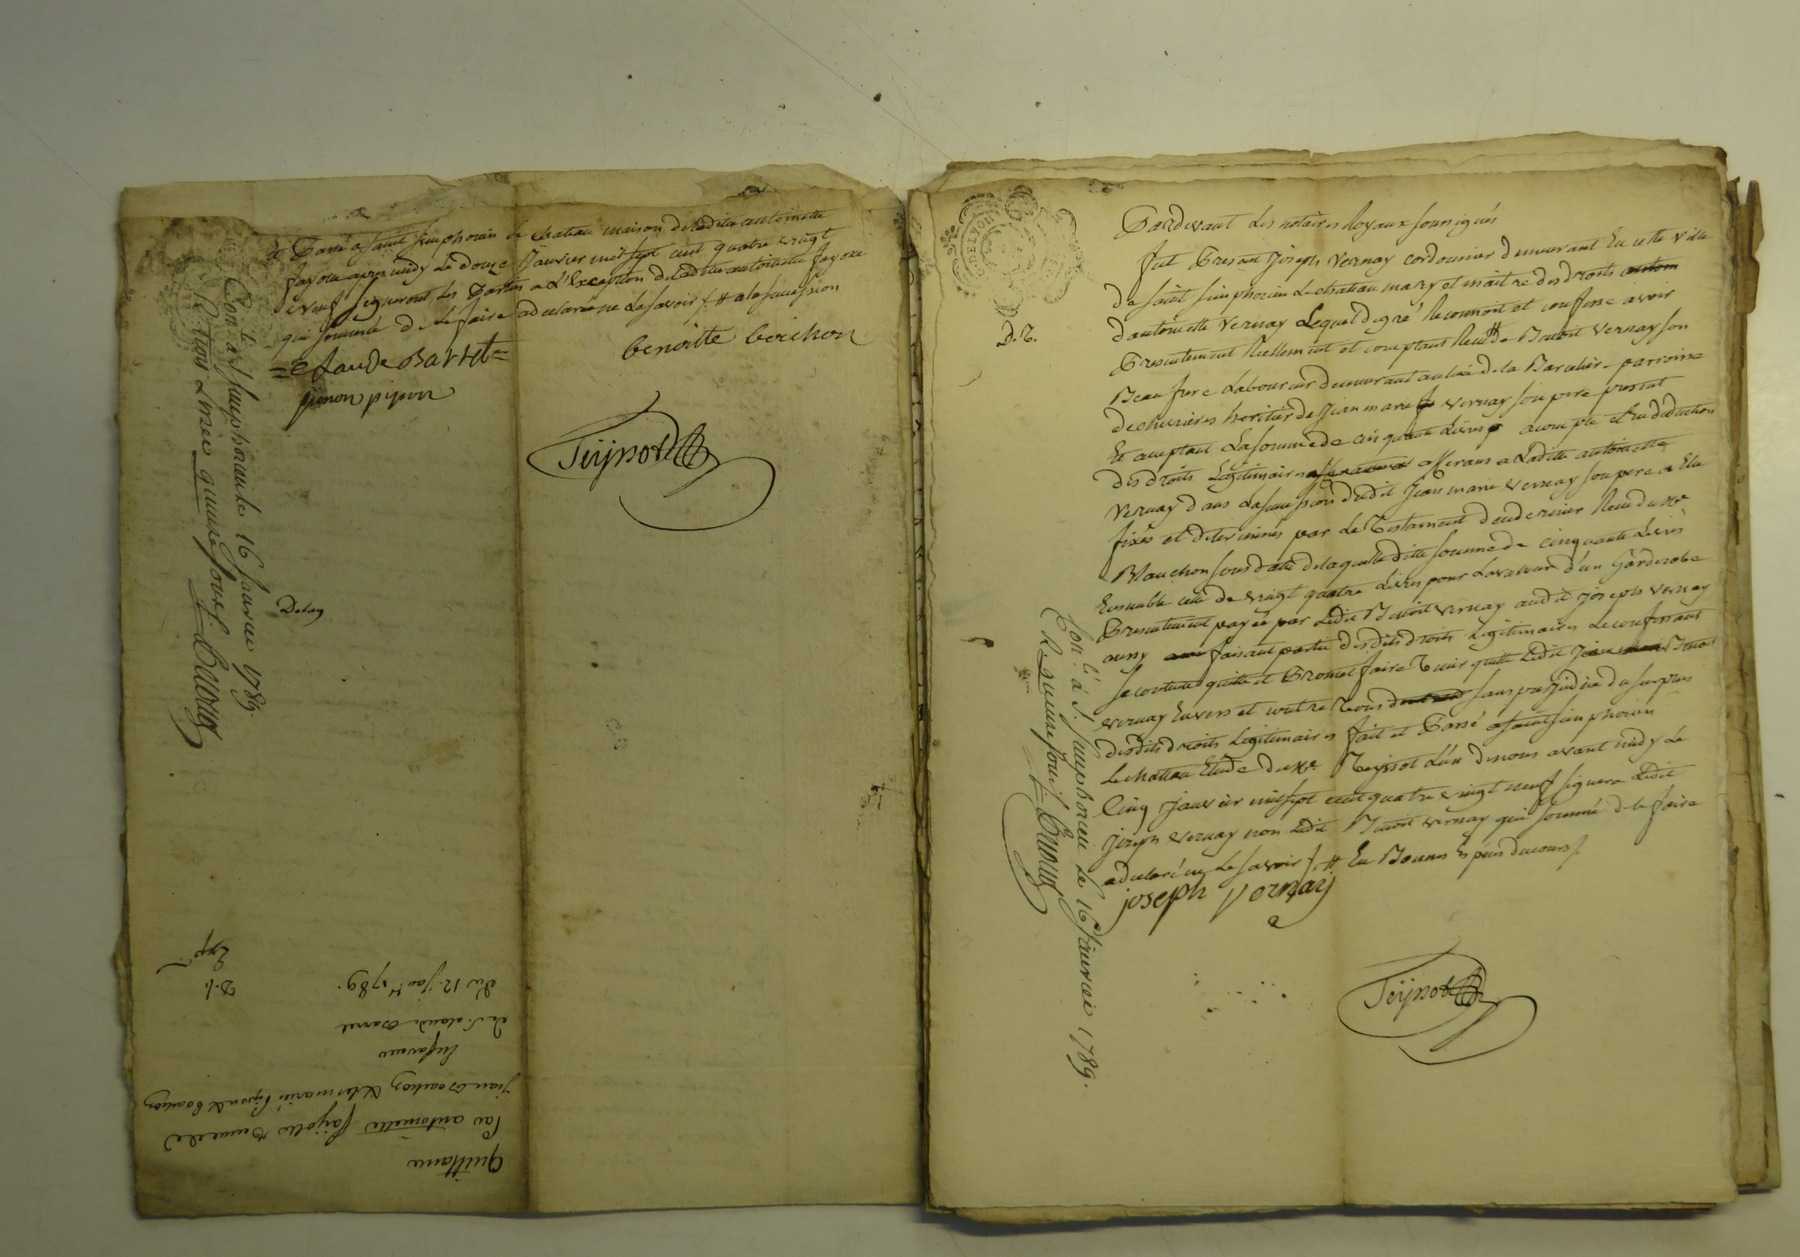 et Passé a saint simphorien le chatau maison de ladite antoinette
fayore apres midy le douze Janvier mil sept cent quatre vingt
et neuf signeront les Parties a l'Exception de ladite antoinette fayore
qui sommée de le faire a declaré ne le savoir /. # a la succession
= Claude Barret =
benoitte berichon
simon
Teyssot
Con.lé a S. simphorien le 16 Janvier 1789.
R. quinze sous
Delay
Quittance
Par antoinette
En faveur
de S. claude Barret
Du 12. janv.er 1789.
D. f.
Exp.
DELYON
D. T.
Pardevant Les notaires Royaux soussignés
fut Present Joseph Vernay cordonnier demeurant En cette ville
de saint simphorien le chatau mary et maitre des droits antoin
d'antoinette Vernay Lequel de gré Reconnoit et confesse avoir
Presentement Reellement et comptant Receu # de Benoit Vernay son
Beau frere Laboureur demeurant au lieu de la Baralière parroisse
de chevrieres heritier de Jean marie Vernay son pere present
et acceptant La somme de cinquante Livres a compte et En déduction
des droits Legitimaires afferants a Ladite antoinette
Vernay dans La succession dudit Jean marie Vernay son pere a Elle
fixés et determinés par Le Testament de ce dernier Receu du Me
Blanchon sous datte de laquelle ditte somme de cinquante Livres
Ensemble celle de vingt quatre Livres pour La valleur d'un Garderobe
Presentement payée par Ledit Benoit Vernay audit Joseph Vernay
aussy faisant partie desdits droits Legitimaires Le confessant
se contente quitte et Promet faire Tenir quitte Ledit Benoit
Vernay Envers et contre Tous sans prejudice du surplus
desdits droits Legitimaires fait et Passé a saint simphorien
Le chatau Etude du Me Teyssot L'un de nous avant midy Le
Cinq Janvier mil sept cent quatre vingt neuf signera Ledit
Joseph Vernay non Ledit Benoit Vernay qui sommé de le faire
a declaré ne Le savoir /. # En Bonnes Especes du cours /.
joseph Vernay
Teyssot
Con.lé à S. simphorien le 16 Janvier 1789.
R. quinze sous